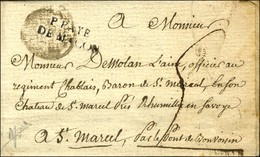 A Monsieur
P PAYE
DE MACON
Monsieur Demolan Lainé, officier au
regiment Chablais, Baron de St. Marcel, en son
Chateau de St. marcel Prés Rhumilly en Savoye
A St. Marcel Par le Pont de Bonvoisin